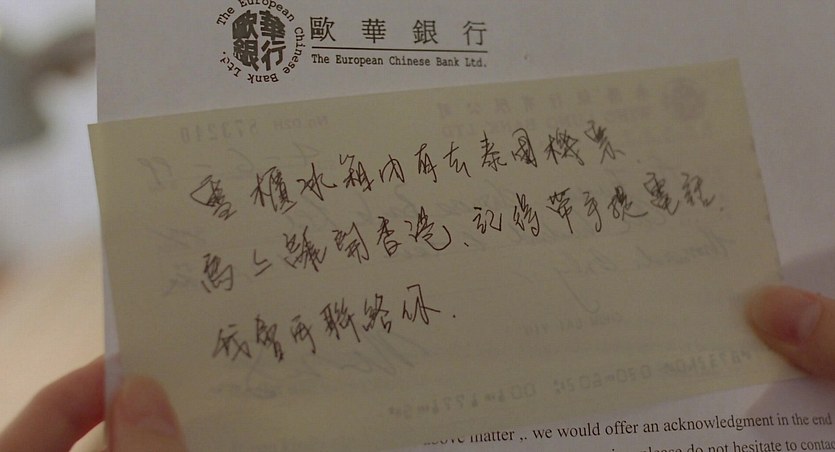 The European Chinese Bank Ltd.
歐華銀行
歐華銀行
The European Chinese Bank Ltd.
雪櫃冰箱內有去泰國機票
馬上離開香港、記得帶手提電話.
我會再聯絡你.
above matter ,. we would offer an acknowledgment in the end
please do not hesitate to contac